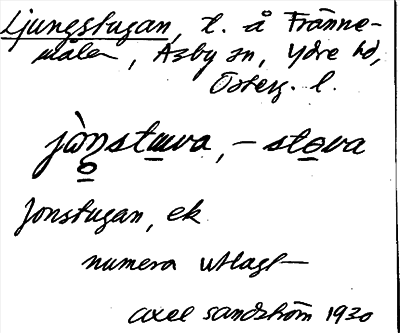 Ljungstugan, t. å Fränne-
målen, Asby sn, Ydre hd,
Österg. l.
jàn̥stuva, – stova
Jonstugan, ek
numera utlagt
Axel Sandström 1930